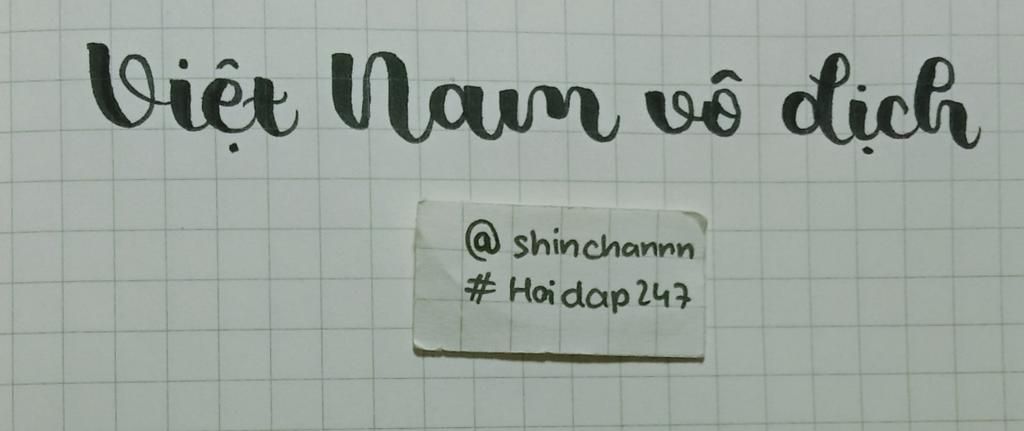 Việt Nam vô địch
@ shinchannn
# Hoidap247